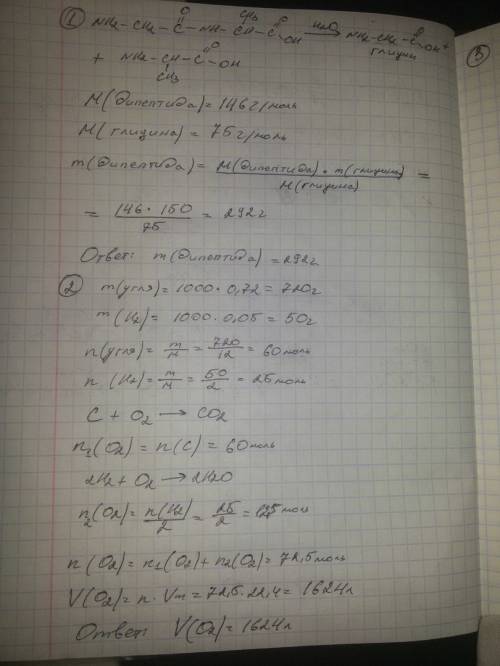 ① NH2-CH2-C(=O)-NH-CH(CH3)-C(=O)-OH →(H2O) NH2-CH2-C(=O)-OH +
глицин
③
+ NH2-CH(CH3)-C(=O)-OH
M(дипептида) = 146 г/моль
M(глицина) = 75 г/моль
m(дипептида) = M(дипептида) · m(глицина) / M(глицина) =
= 146 · 150 / 75 = 292 г
Ответ: m(дипептида) = 292 г
② m(угля) = 1000 · 0,72 = 720 г
m(H2) = 1000 · 0,05 = 50 г
n(угля) = m/M = 720/12 = 60 моль
n(H2) = m/M = 50/2 = 25 моль
C + O2 → CO2
n1(O2) = n(C) = 60 моль
2H2 + O2 → 2H2O
n2(O2) = n(H2)/2 = 25/2 = 12,5 моль
n(O2) = n1(O2) + n2(O2) = 72,5 моль
V(O2) = n · Vm = 72,5 · 22,4 = 1624 л
Ответ: V(O2) = 1624 л